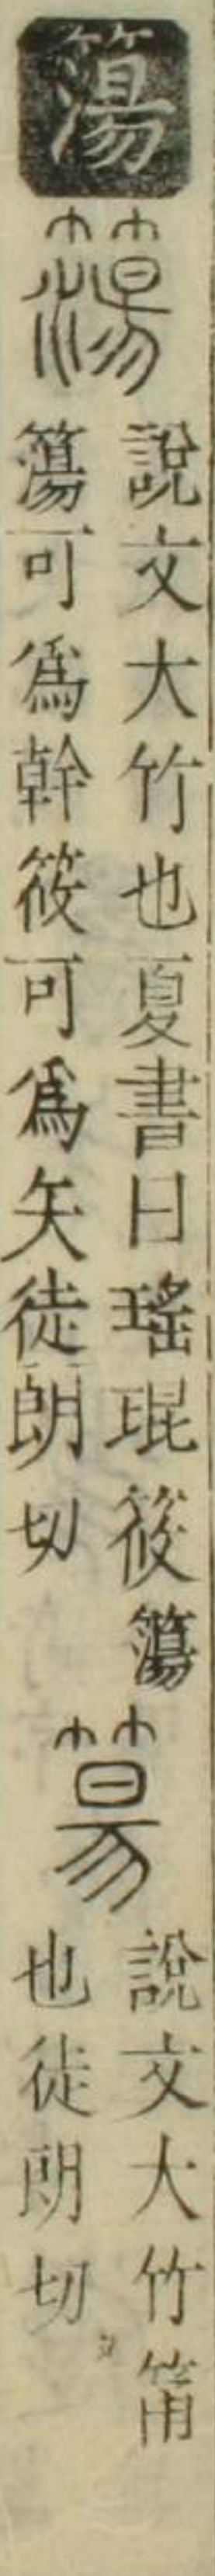 簜
簜
說文大竹也夏書曰瑤琨筱簜
簜可爲幹筱可爲矢徒朗切
簜
說文大竹筩
也徒朗切